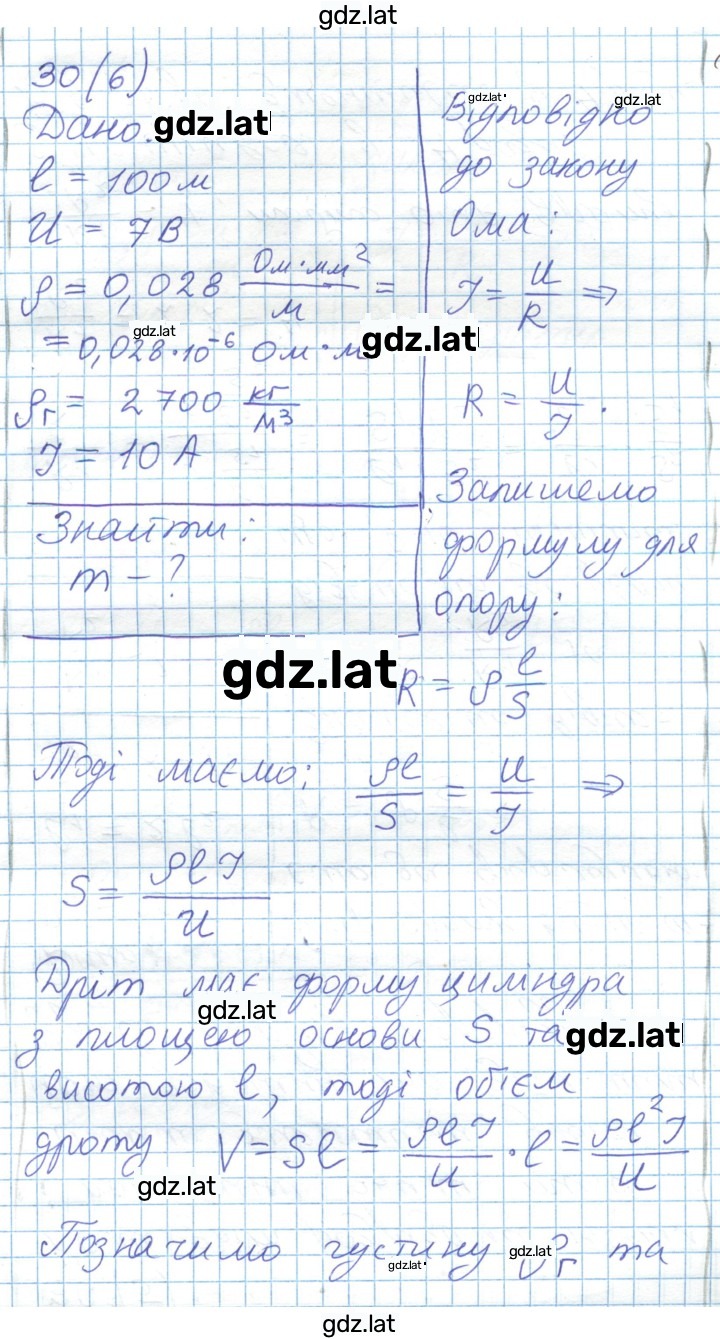 gdz.lat
30(6)
Дано.
gdz.lat
l = 100 м
U = 7В
ρ = 0,028 Ом·мм²/м =
gdz.lat
= 0,028·10⁻⁶ Ом·м
ρг = 2700 кг/м³
I = 10 А
Знайти:
m - ?
gdz.lat
gdz.lat
Відповідно
до закону
Ома:
I = U/R ⇒
gdz.lat
R = U/I.
Запишемо
формулу для
опору:
gdz.lat
R = ρ l/S
Тоді маємо: ρl/S = U/I ⇒
S = ρlI/U
Дріт має форму циліндра
gdz.lat
з площею основи S та
gdz.lat
висотою l, тоді об'єм
дроту V = Sl = ρlI/U · l = ρl²I/U
gdz.lat
Позначимо густину ρг та
gdz.lat
gdz.lat
gdz.lat